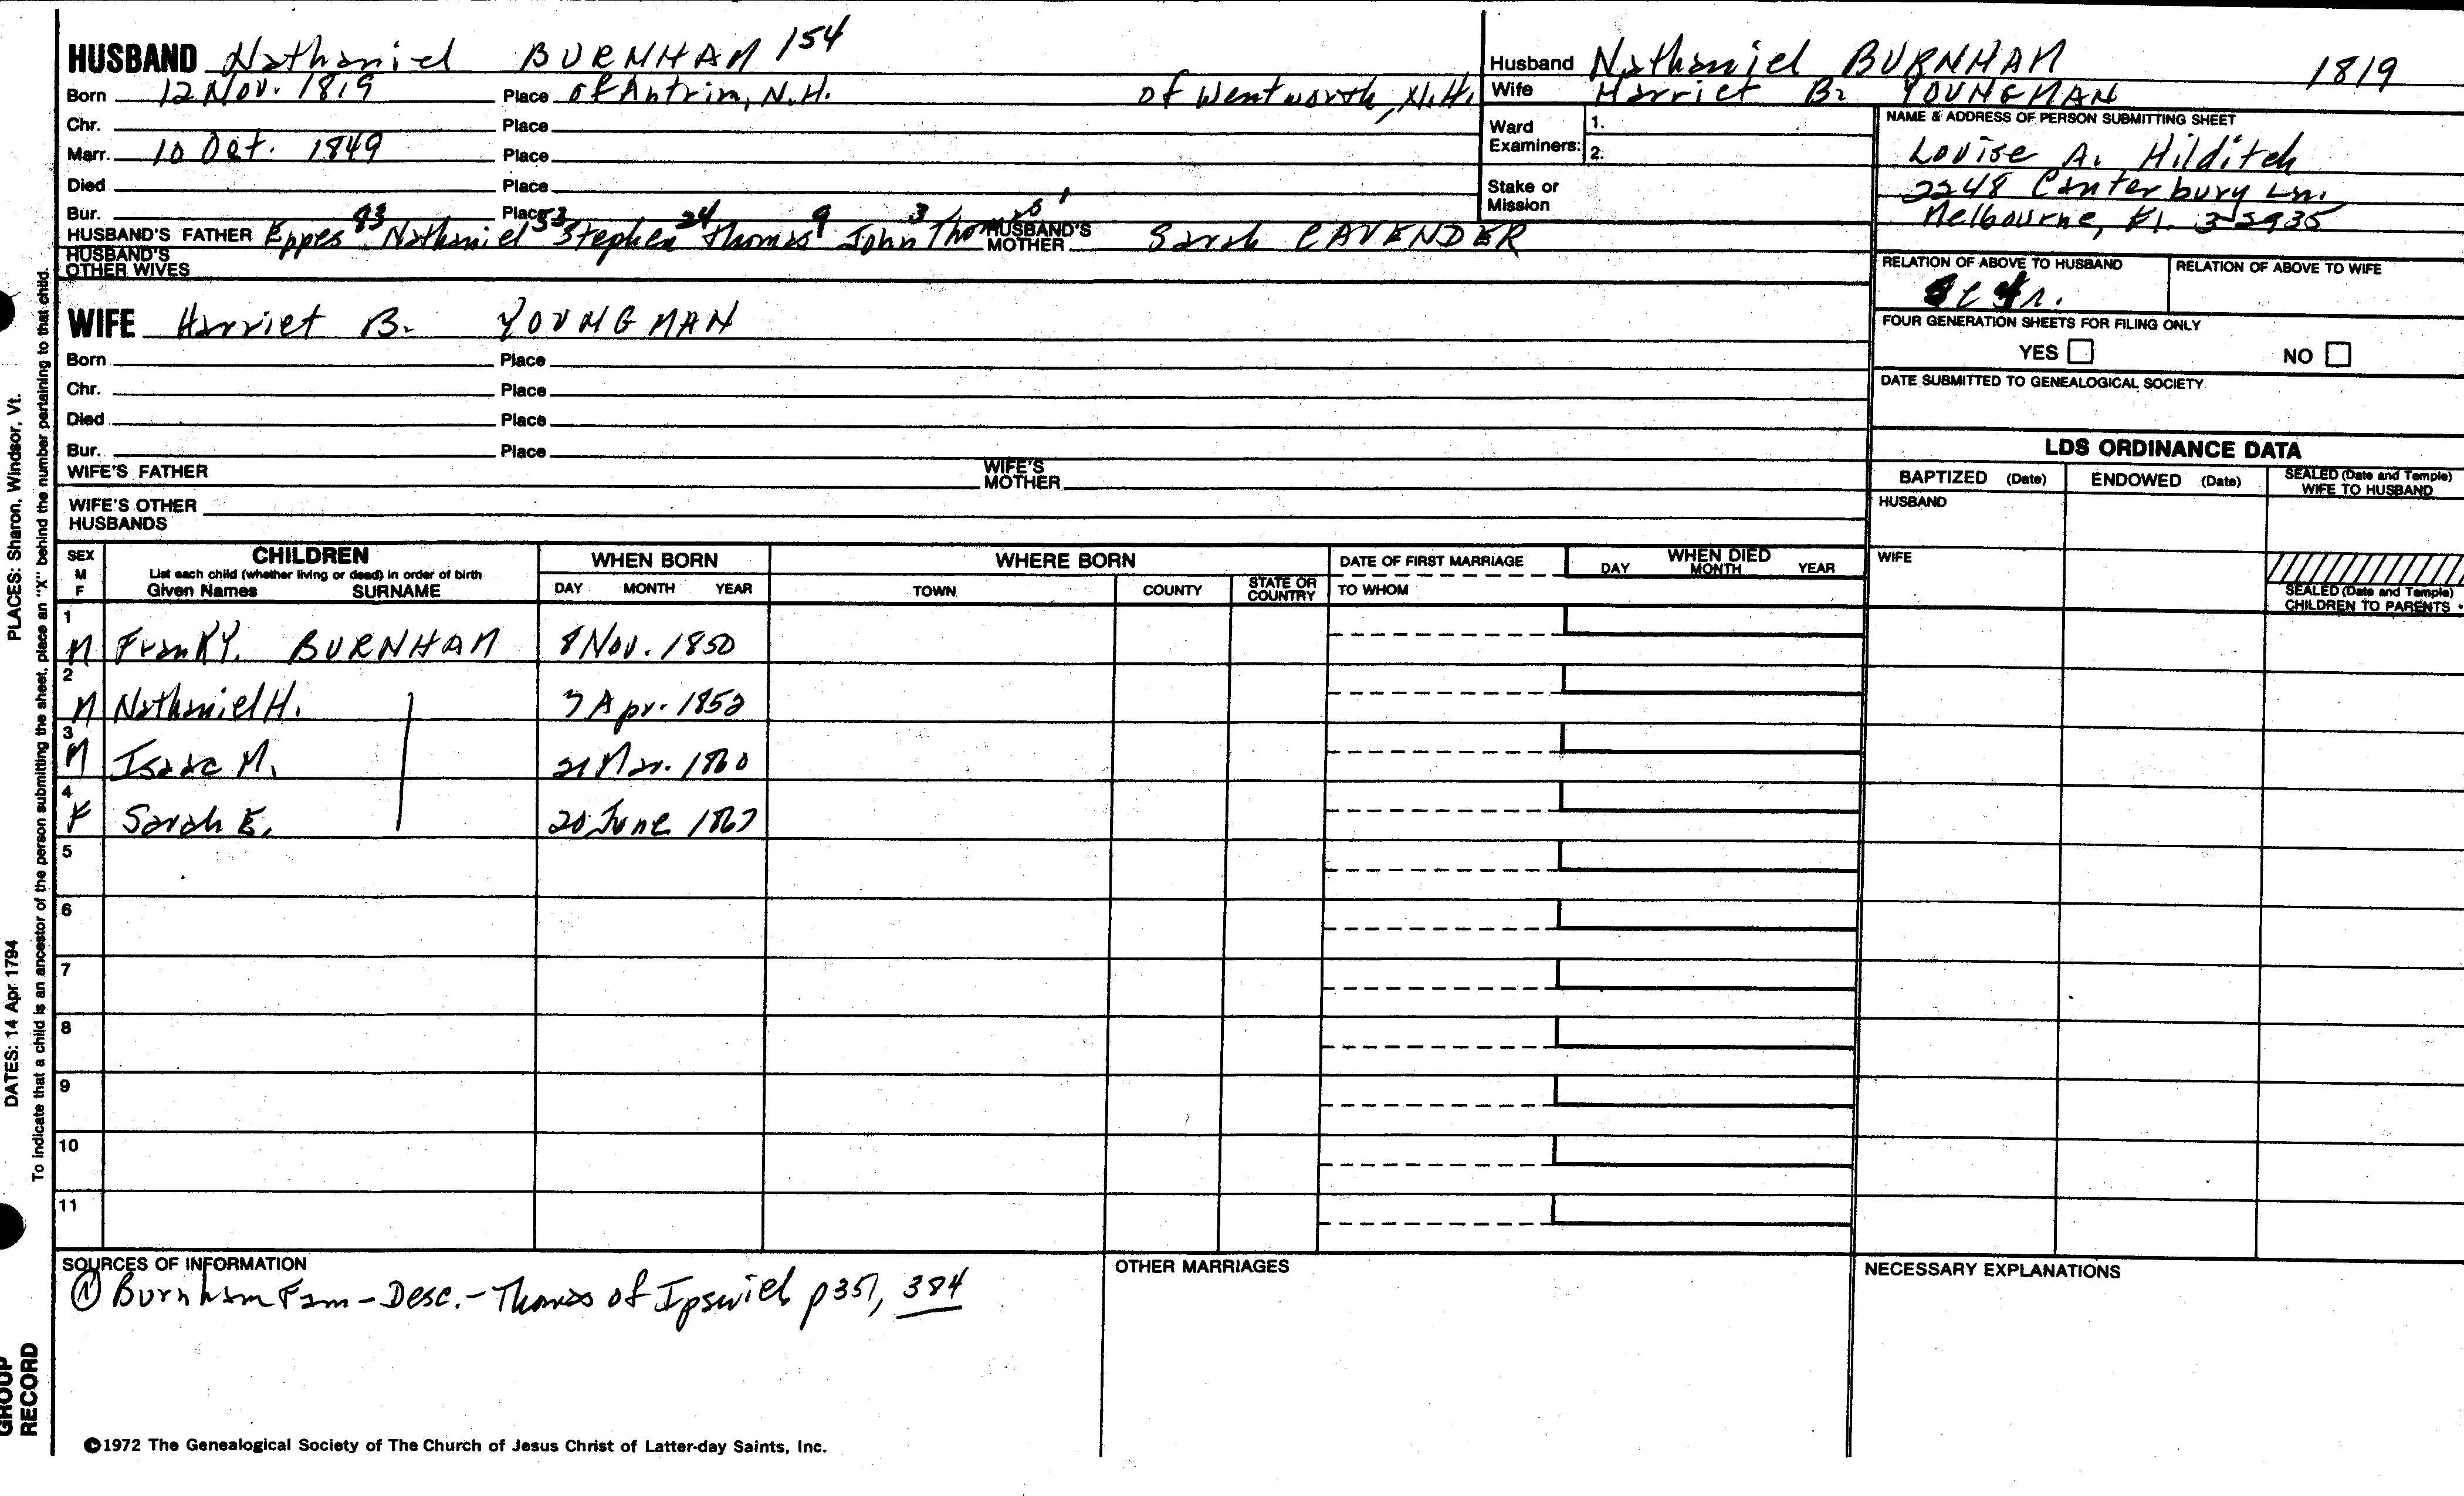 HUSBAND Nathaniel BURNHAM 154
Born 12 Nov. 1819 Place of Antrim, N.H. of Wentworth, N.H.
Chr. Place
Marr. 10 Oct. 1849 Place
Died Place
Bur. Place
83 53 24 9 3 1
HUSBAND'S FATHER Eppes Nathaniel Stephen Thomas John Thomas HUSBAND'S MOTHER Sarah CAVENDER
HUSBAND'S OTHER WIVES
WIFE Harriet B. YOUNGMAN
Born Place
Chr. Place
Died Place
Bur. Place
WIFE'S FATHER WIFE'S MOTHER
WIFE'S OTHER HUSBANDS
Husband Nathaniel BURNHAM 1819
Wife Harriet B. YOUNGMAN
Ward Examiners: 1.
2.
Stake or Mission
NAME & ADDRESS OF PERSON SUBMITTING SHEET
Louise A. Hilditch
2248 Canterbury Ln.
Melbourne, Fl. 32935
RELATION OF ABOVE TO HUSBAND RELATION OF ABOVE TO WIFE
FOUR GENERATION SHEETS FOR FILING ONLY
YES NO
DATE SUBMITTED TO GENEALOGICAL SOCIETY
LDS ORDINANCE DATA
BAPTIZED (Date) ENDOWED (Date) SEALED (Date and Temple) WIFE TO HUSBAND
HUSBAND
WIFE
SEALED (Date and Temple) CHILDREN TO PARENTS
SEX M F CHILDREN WHEN BORN WHERE BORN DATE OF FIRST MARRIAGE WHEN DIED
List each child (whether living or dead) in order of birth
Given Names SURNAME DAY MONTH YEAR TOWN COUNTY STATE OR COUNTRY TO WHOM DAY MONTH YEAR
1 M Frank Y. BURNHAM 8 Nov. 1850
2 M Nathaniel H. 7 Apr. 1852
3 M Isaac M. 21 Mar. 1860
4 F Sarah E. 20 June 1867
5
6
7
8
9
10
11
SOURCES OF INFORMATION OTHER MARRIAGES NECESSARY EXPLANATIONS
① Burnham Fam - Desc. - Thomas of Ipswich p 351, 384
©1972 The Genealogical Society of The Church of Jesus Christ of Latter-day Saints, Inc.
PLACES: Sharon, Windsor, Vt.
DATES: 14 Apr 1794
To indicate that a child is an ancestor of the person submitting the sheet, place an "X" behind the number pertaining to that child.
GROUP
RECORD